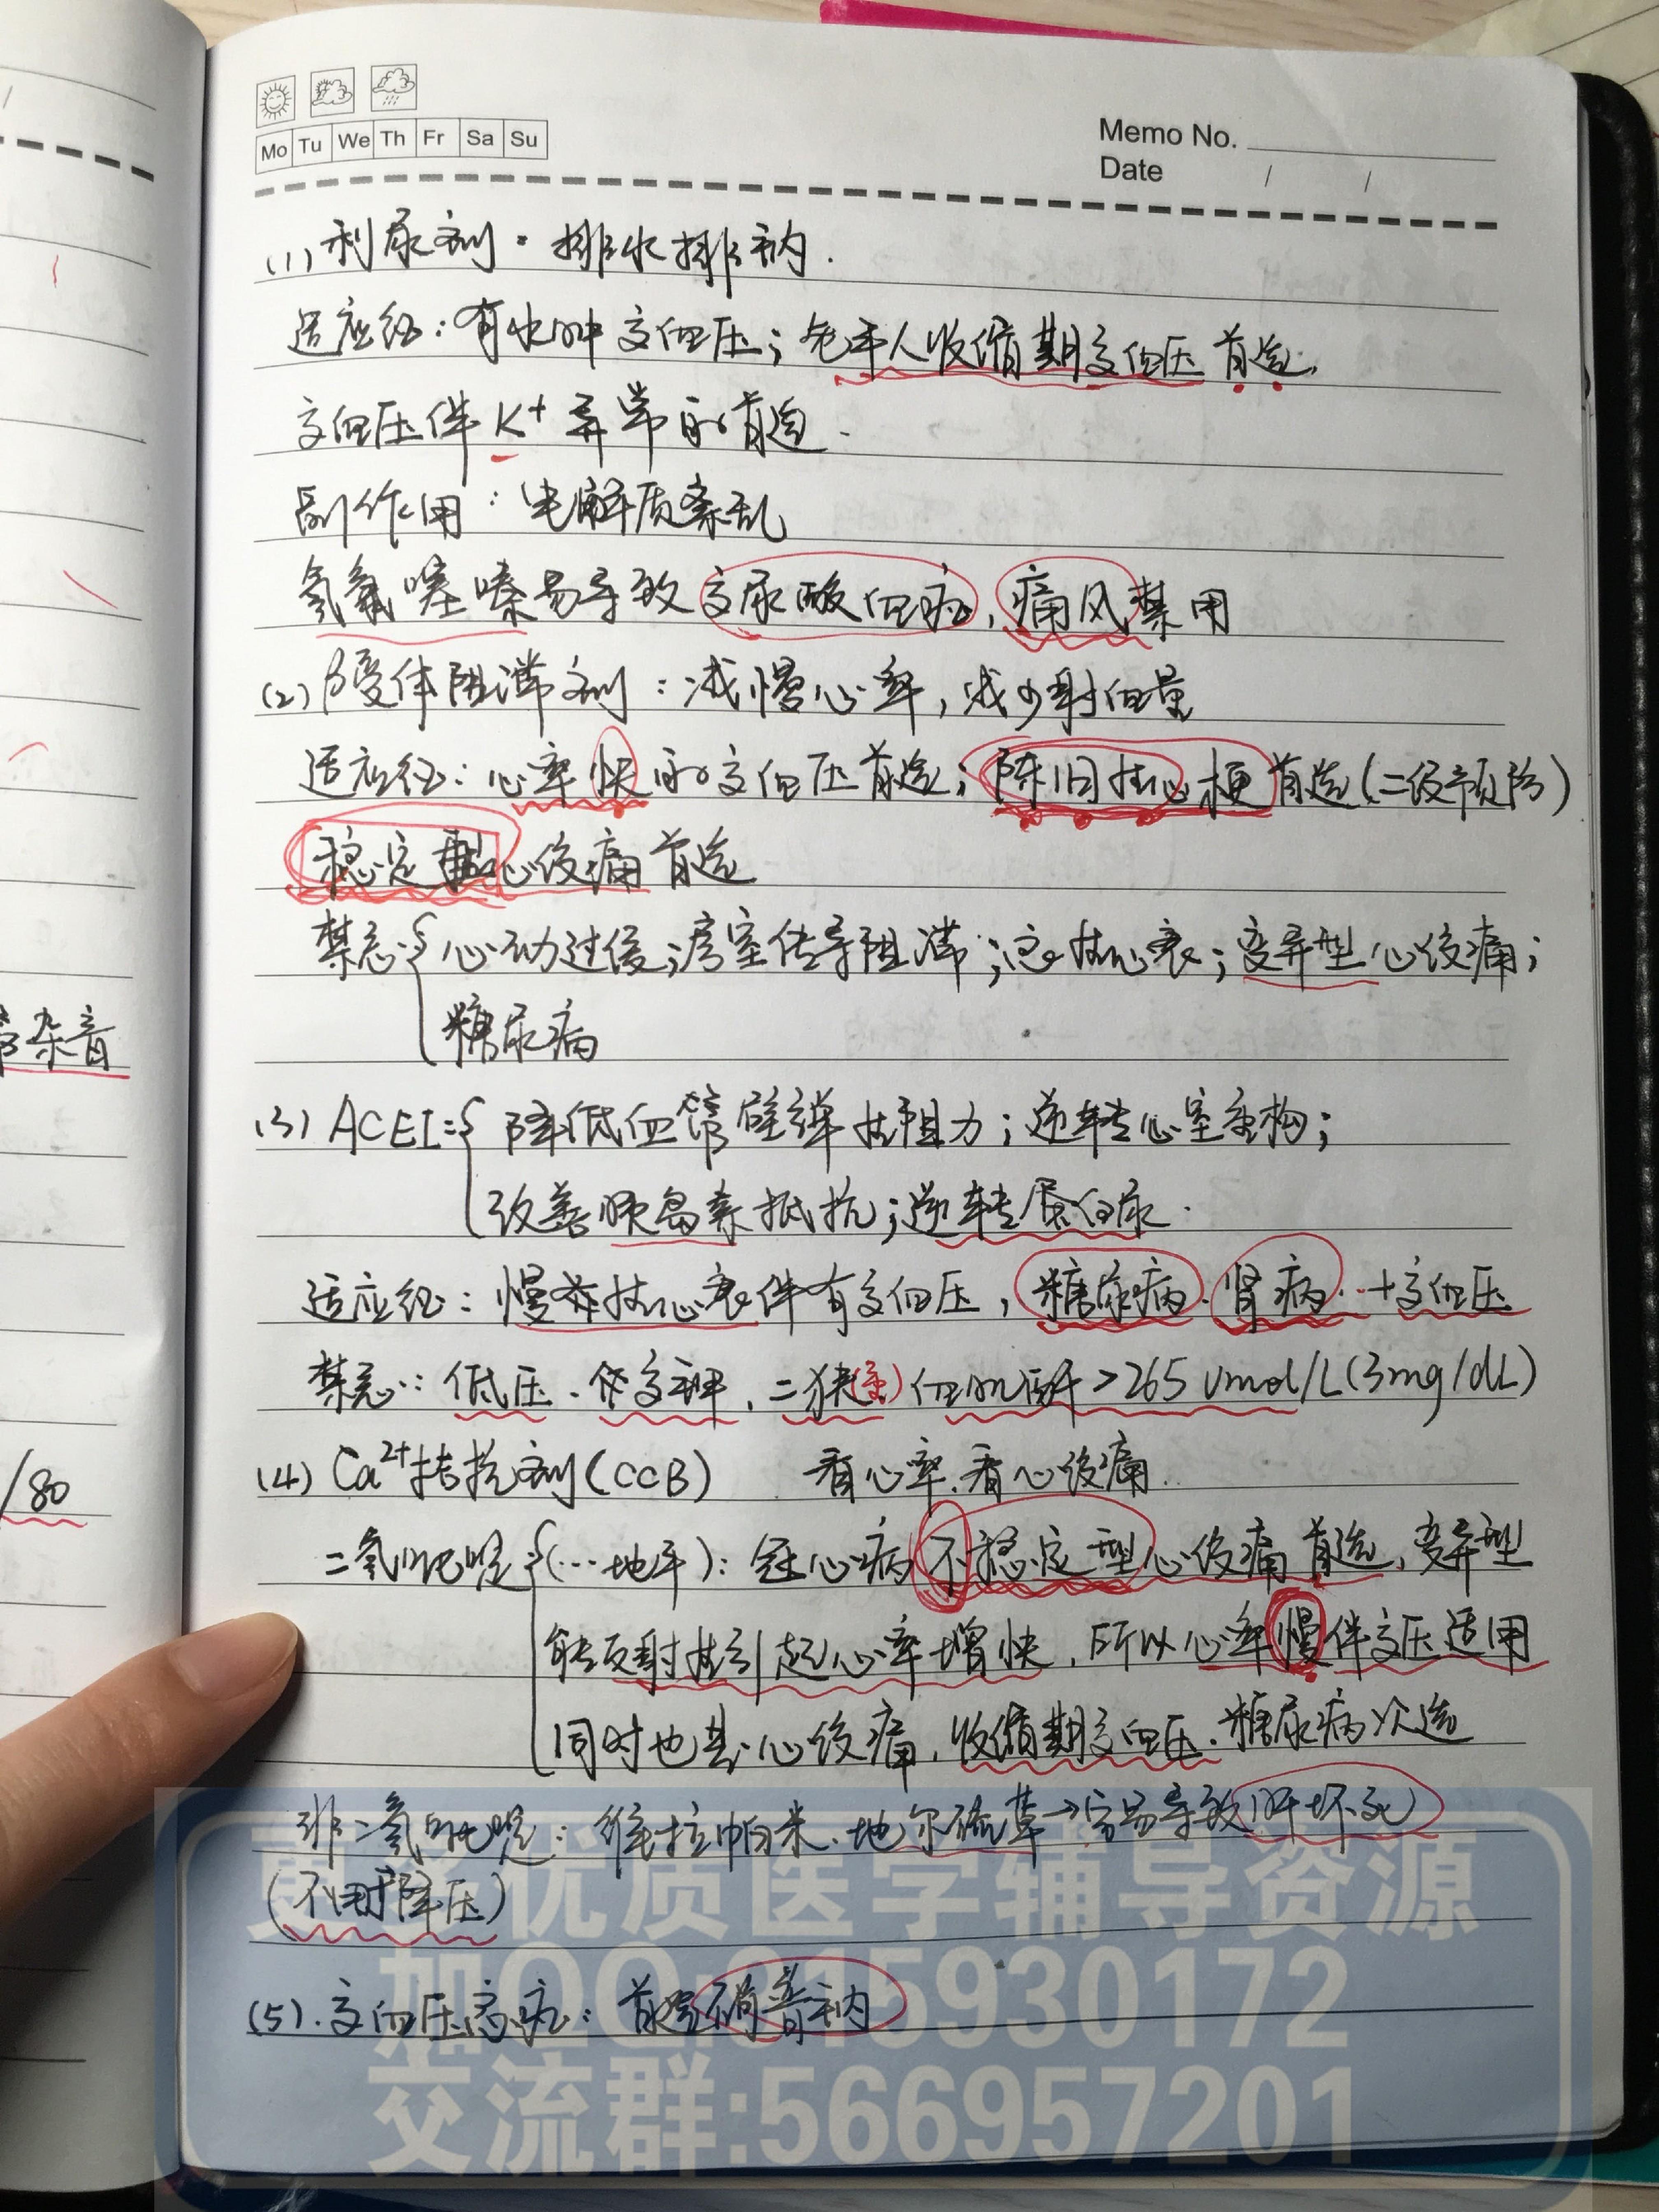 Mo Tu We Th Fr Sa Su
Memo No.
Date / /
(1) 利尿剂：排水排钠.
适应证：有水肿高血压；老年人收缩期高血压首选.
高血压伴K⁺异常的首选.
副作用：电解质紊乱
氢氯噻嗪易导致高尿酸血症，痛风禁用
(2) β受体阻滞剂：减慢心率，减少射血量
适应征：心率快的高血压首选；陈旧性心梗首选(二级预防)
稳定型心绞痛首选
禁忌：心动过缓；房室传导阻滞；急性心衰；变异型心绞痛；
糖尿病
(3) ACEI：降低血管壁弹性阻力；逆转心室重构；
改善胰岛素抵抗；逆转蛋白尿.
适应征：慢性心衰伴有高血压，糖尿病.肾病…+高血压
禁忌：低压.高钾.二狭(重)血肌酐>265 umol/L(3mg/dL)
(4) Ca²⁺拮抗剂(CCB) 看心率.看心绞痛..
二氢吡啶(…地平)：冠心病不稳定型心绞痛首选，变异型
能反射性引起心率增快，所以心率慢伴高压适用
同时也是心绞痛，收缩期高血压.糖尿病次选
非二氢吡啶：维拉帕米.地尔硫䓬→容易导致肝坏死
(不用于降压)
(5).高血压急症：首选硝普钠
常杂音
/80
更多优质医学辅导资源
加QQ:815930172
交流群:566957201